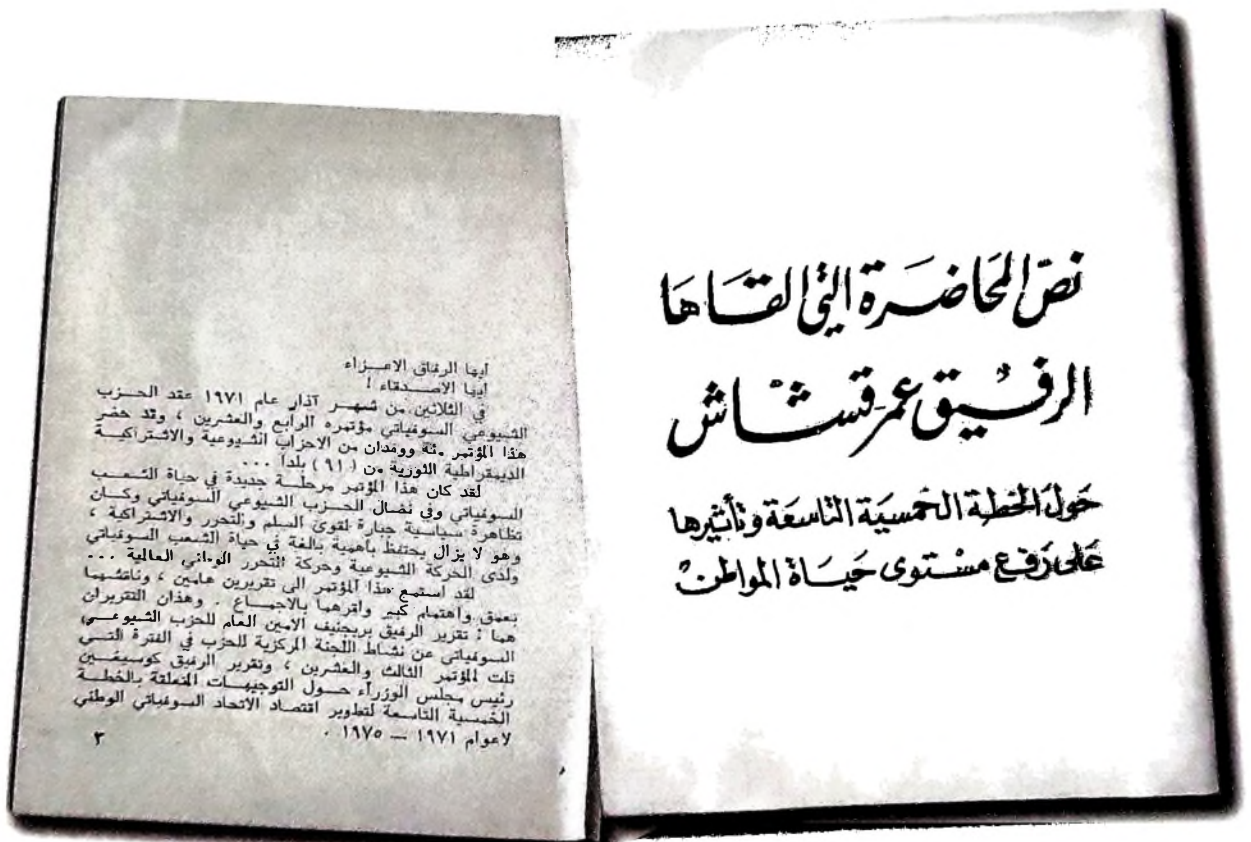 نصّ المحاضرة التي القاها
الرفيق عمر قشاش
حول الخطة الخمسية التاسعة وتأثيرها
على رفع مستوى حياة المواطن
ايها الرفاق الاعـــزاء
ايها الاصــدقاء !
في الثلاثين من شهــر آذار عام ١٩٧١ عقد الحــزب
الشيوعي السوفياتي مؤتمره الرابع والعشرين ، وقد حضر
هذا المؤتمر مئة ووفدان من الاحزاب الشيوعية والاشتراكيــة
الديمقراطية الثورية من (٩١) بلدا ...
لقد كان هذا المؤتمر مرحلــة جديدة في حياة الشــعب
السوفياتي وفي نضال الحــزب الشيوعي السوفياتي وكــان
تظاهرة سياسية جبارة لقوى السلم والتحرر والاشتراكية ،
وهو لا يزال يحتفظ بأهمية بالغة في حياة الشعب السوفياتي
ولدى الحركة الشيوعية وحركة التحرر الوطني العالمية ...
لقد استمع هذا المؤتمر الى تقريرين هامين ، وناقشهما
بعمق واهتمام كبير واقرهما بالاجمــاع . وهذان التقريران
هما : تقرير الرفيق بريجنيف الامين العام للحزب الشيوعــي
السوفياتي عن نشاط اللجنة المركزية للحزب في الفترة التــي
تلت المؤتمر الثالث والعشرين ، وتقرير الرفيق كوسيغــين
رئيس مجلس الوزراء حــول التوجيهــات المتعلقة بالخطة
الخمسية التاسعة لتطوير اقتصاد الاتحاد السوفياتي الوطني
لاعوام ١٩٧١ — ١٩٧٥ .
٣